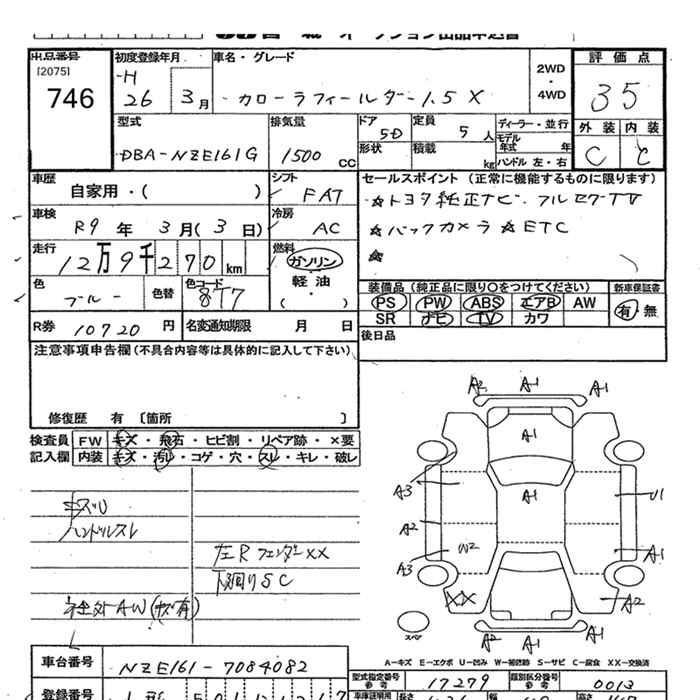 出品番号 初度登録年月 車名・グレード 評価点
[2075] 746 H 26 3月 カローラフィールダー 1.5 X 2WD・4WD 35
型式 排気量 ドア 5D 定員 5人 ディーラー・並行 外装 内装
DBA-NZE161G 1500 CC 形状 積載 kg モデル年式 年 ハンドル 左・右 C C
車歴 自家用・( ) シフト FAT セールスポイント (正常に機能するものに限ります)
☆トヨタ純正ナビ・フルセグTV
車検 R9年 3月(3日) 冷房 AC ☆バックカメラ ☆ETC
走行 12万9千270km 燃料 ガソリン・軽油・( ) ☆
色 ブルー 色替 色コード 8T7 装備品 (純正品に限り○をつけてください) 新車保証書
PS PW ABS エアB AW 有・無
SR ナビ TV カワ
R券 10720円 名変通知期限 月 日 後日品
注意事項申告欄 (不具合内容等は具体的に記入して下さい)
修復歴 有 〔箇所 〕
検査員 FW キズ・飛石・ヒビ割・リペア跡・×要
記入欄 内装 キズ・汚れ・コゲ・穴・スレ・キレ・破レ
ハンドルスレ
左Rフェンダー××
下廻りSC
社外AW(キズ有)
A2 A1 A1
A1
A1
A3
U1
A2
W2
A1
A3
XX
A2
A2 A1 A1
スペア
A-キズ E-エクボ U-凹み W-補修跡 S-サビ C-腐食 XX-交換済
車台番号 NZE161-7084082
型式指定番号 参考 17279 類別区分番号 参考 0013
登録番号